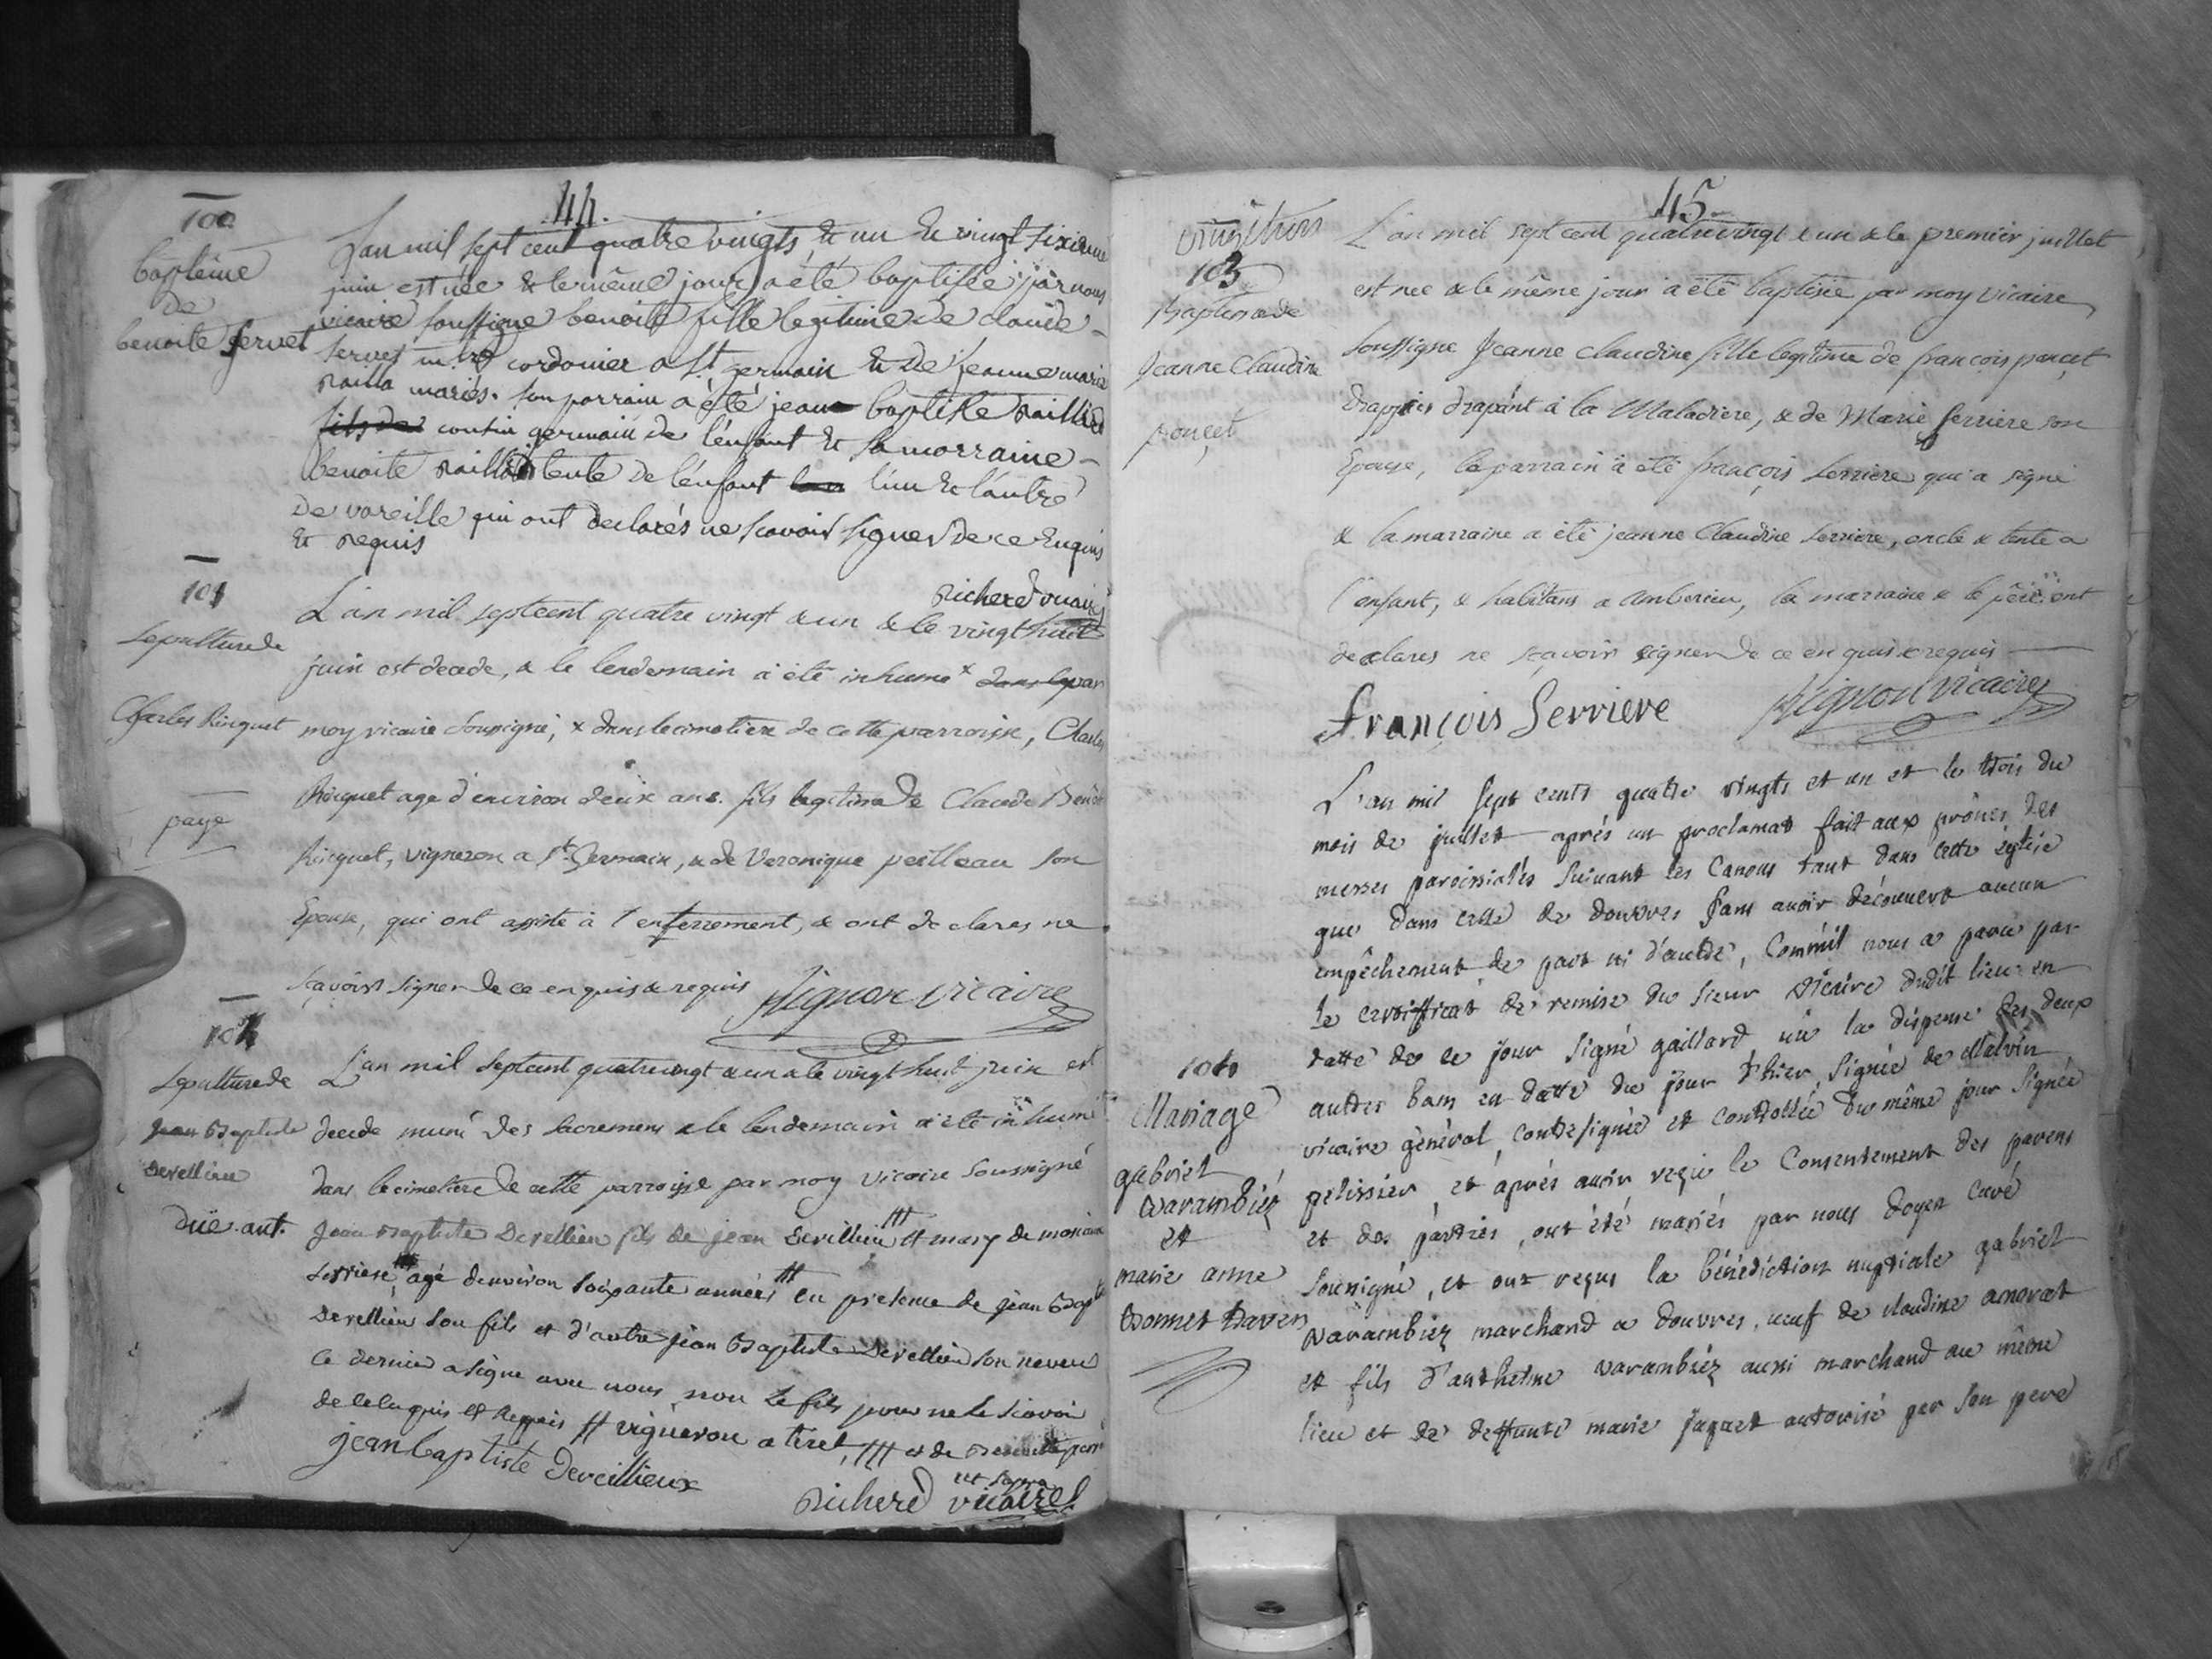 44.
100
baptême
de
benoite Servet
L'an mil sept cent quatre vingts & un & vingt sixieme
juin est née & le même jour a été baptisée par nous
vicaire soussigne benoite fille legitime de claude
Servet m.tre cordonier a St germain & de jeanne marie
mariés. son parrain a été jean baptiste
fils de cousin germain de l'enfant & sa marraine
benoite tente de l'enfant l'un & l'autre
de vareille qui ont declarés ne scavoir signer de ce enquis
& requis
Richerd vicaire
101
Sepulture de
Charles Ringuet
paye
L'an mil septcent quatre vingt & un & le vingt huit
juin est decede, & le lendemain a été inhume x dans le par
moy vicaire soussigné, x dans le cimetiere de cette parroisse, Charles
Ringuet age d'environ deux ans. fils legitime de Claude Benoit
Ringuet, vigneron a St Germain, & de Veronique peilleau son
Epouse, qui ont assisté à l'enterrement, & ont declares ne
sçavoir signer de ce enquis & requis vicaire
102
Sepulture de
jean Baptiste
Derellieu
düe. ant.
L'an mil septcent quatrevingt & un & le vingt huit juin est
decede muni des sacremens & le lendemain a été inhumé
dans le cimetiere de cette parroisse par moy vicaire soussigné
jean Baptiste Derellieu fils de jean Derellieu ### et mary de
serriere, agé d'environ soixante années ## en presence de jean Bapte
Derellieu son fils et d'autre jean Baptiste Derellieu son neveu
ce dernier a signe avec nous non le fils pour ne le sçavoir
de ce enquis et requis ## vigneron a tiret, ### et de
jean baptiste Dereillieux
Richerd vicaire
45.
103
Baptême de
Jeanne Claudine
ponçet
L'an mil sept cent quatrevingt & un & le premier juillet
est nee & le même jour a été baptisée par moy vicaire
soussigne Jeanne Claudine fille legitime de françois ponçet
drappier drapant à la Maladiere, & de Marie serriere son
Epouse, le parrain a été françois serriere qui a signé
& la marraine a été jeanne Claudine serriere, oncle & tente a
l'enfant, & habitans a Amberieu, la marraine & le père ont
declares ne sçavoir signer de ce enquis & requis
François Serriere
vicaire
104
Mariage
gabriel
varambier
et
marie anne
Bonnet Daven
L'an mil sept cents quatre vingts et un et le trois du
mois de juillet après un proclamat fait aux prônes des
messes paroissiales suivant les Canons tant dans cette église
que dans celle de douvres sans avoir découvert aucun
empêchement de part ni d'autre, Comm'il nous a paru par
le certificat de remise du sieur vicaire dudit lieu en
datte de ce jour signé gaillard vû la dispense des deux
autres bans en datte du jour d'hier signée de
vicaire général, contresignée et controllée du même jour signée
pelissier, et après avoir reçu le Consentement des parens
et des parties, ont été mariés par nous doyen curé
soussigné, et ont reçus la bénédiction nuptiale gabriel
varambier marchand a douvres, veuf de claudine
et fils d'anthelme varambier aussi marchand au même
lieu et de deffunte marie juquet autorisé par son pere